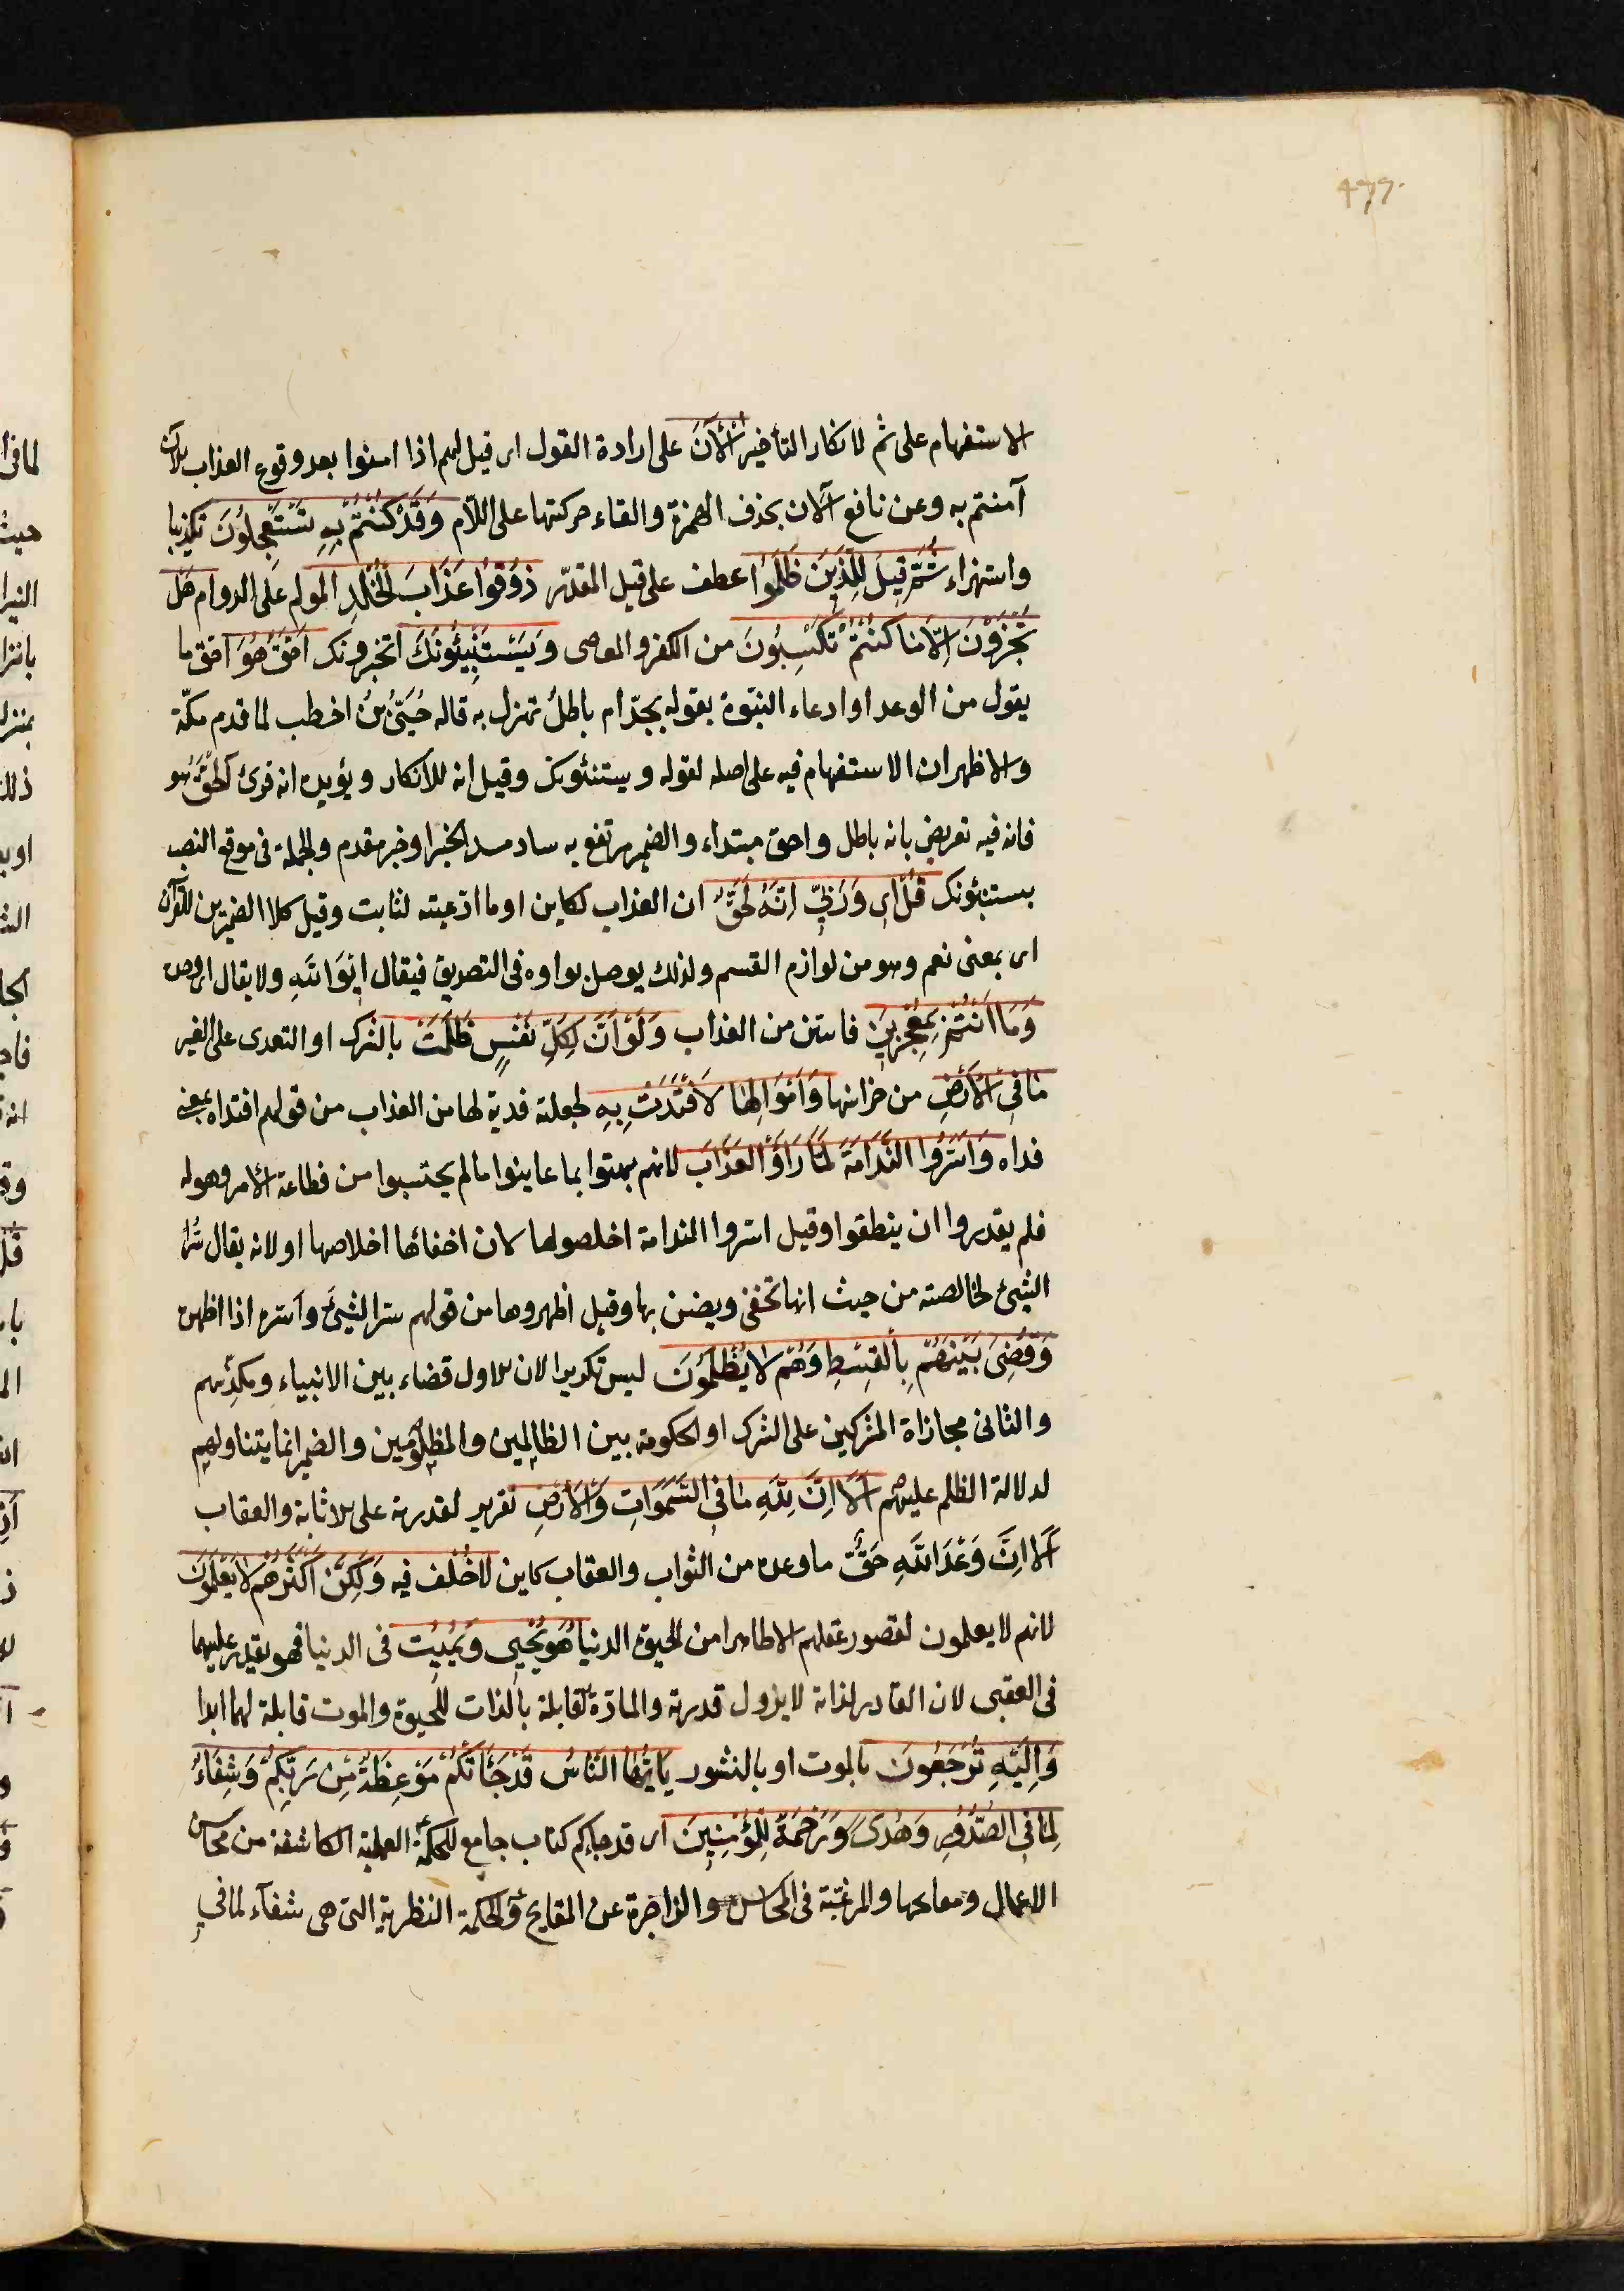 477
الاستفهام على ثم لانكار التأخير اَلْآنَ على ارادة القول اى قيل لهم اذا امنوا بعد وقوع العذاب الآن
آمنتم به وعن نافع آلان بحذف الهمزة والقاء حركتها على اللام وَقَدْ كُنْتُمْ بِهِ تَسْتَعْجِلُونَ تكذيبا
واستهزاء ثُمَّ قِيلَ لِلَّذِينَ ظَلَمُوا عطف على قيل المقدّر ذُوقُوا عَذَابَ الْخُلْدِ المولم على الدوام هَلْ
تُجْزَوْنَ اِلَّا مَا كُنْتُمْ تَكْسِبُونَ من الكفر والمعاصى وَيَسْتَنْبِئُونَكَ اتخبرونك اَحَقٌّ هُوَ احق ما
يقول من الوعد او ادعاء النبّوة بقوله بجدّ ام باطلٌ تهزل به قاله حُيَىّ بنُ اخطب لما قدم مكّة
والاظهر ان الاستفهام فيه على اصله لقوله ويستنئونك وقيل انه للانكار ويؤيده انه قرئ آلحَقُّ هو
فانه فيه تعريض بانه باطل واحق مبتداء والضمير مرتفع به ساد مسد الخبر او خبر مقدم والجملة فى موقع النصب
بيستنبئونك قُلْ اى وَرَبِّى اِنَّهُ لَحَقٌّ ان العذاب لكاين او ما ادّعيته لثابت وقيل كلا الضميرين للقرآن
اى بمعنى نعم وهو من لوازم القسم ولذلك يوصل بواوه فى التصديق فيقال اِيوَاللَّهِ ولا يقال اى وحده
وَمَا اَنْتُمْ بِمُعْجِزِينَ فائتين من العذاب وَلَوْ اَنَّ لِكُلِّ نَفْسٍ ظَلَمَتْ بالشرك او التعدى على الغير
مَا فِى الْاَرْضِ من خزائنها وَاَمْوَالِهَا لَافْتَدَتْ بِهِ لجعلته فدية لها من العذاب من قولهم افتداه بمعنى
فداه وَاَسَرُّوا النَّدَامَةَ لَمَّا رَاَوُا الْعَذَابَ لانهم بهتوا بما عاينوا مالم يحتسبوا من فظاعة الأمر وهوله
فلم يقدروا ان ينطقوا وقيل اسروا الندامة اخلصوها لان اخفائها اخلاصها او لانه يقال سّر
الشئ لخالصته من حيث انها تخفى ويضن بها وقيل اظهروها من قولهم سر الشئ واسره اذا اظهره
وَقُضِىَ بَيْنَهُمْ بِالْقِسْطِ وَهُمْ لَا يُظْلَمُونَ ليس تكريرا لان الاول قضاء بين الانبياء ومكذّبيهم
والثانى مجازاة المشركين على الشرك او الحكومة بين الظالمين والمظلومين والضمير انما يتناولهم
لدلالة الظلم عليهم اَلَا اِنَّ لِلَّهِ مَا فِى السَّمَوَاتِ وَالْاَرْضِ تقرير لقدرته على الاثابة والعقاب
اَلَا اِنَّ وَعْدَ اللَّهِ حَقٌّ ما وعده من الثواب والعقاب كاين لا خُلْف فيه وَلَكِنَّ اَكْثَرَهُمْ لَا يَعْلَمُونَ
لانهم لا يعلمون لقصور عقلهم الا ظاهرا من الحيوة الدنيا هُوَ يُحْيِى وَيُمِيتُ فى الدنيا فهو يقدر عليهما
فى العقبى لان القادر لذاته لا يزول قدرته والمادّة القابلة بالذات للحيوة والموت قابلة لهما ابدا
وَاِلَيْهِ تُرْجَعُونَ بالموت او بالنشور يَا اَيُّهَا النَّاسُ قَدْ جَاءَتْكُمْ مَوْعِظَةٌ مِنْ رَبِّكُمْ وَشِفَاءٌ
لِمَا فِى الصُّدُورِ وَهُدًى وَرَحْمَةٌ لِلْمُؤْمِنِينَ اى قد جاءكم كتاب جامع للحكمة العملية الكاشفة من محاسن
الاعمال ومقابحها والمرغبة فى المحاسن والزاجرة عن المقابح والحكمة النظرية التى هى شفآء لما فى